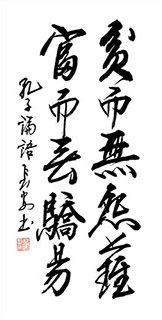 貧而無怨難
富而無驕易
孔子論語